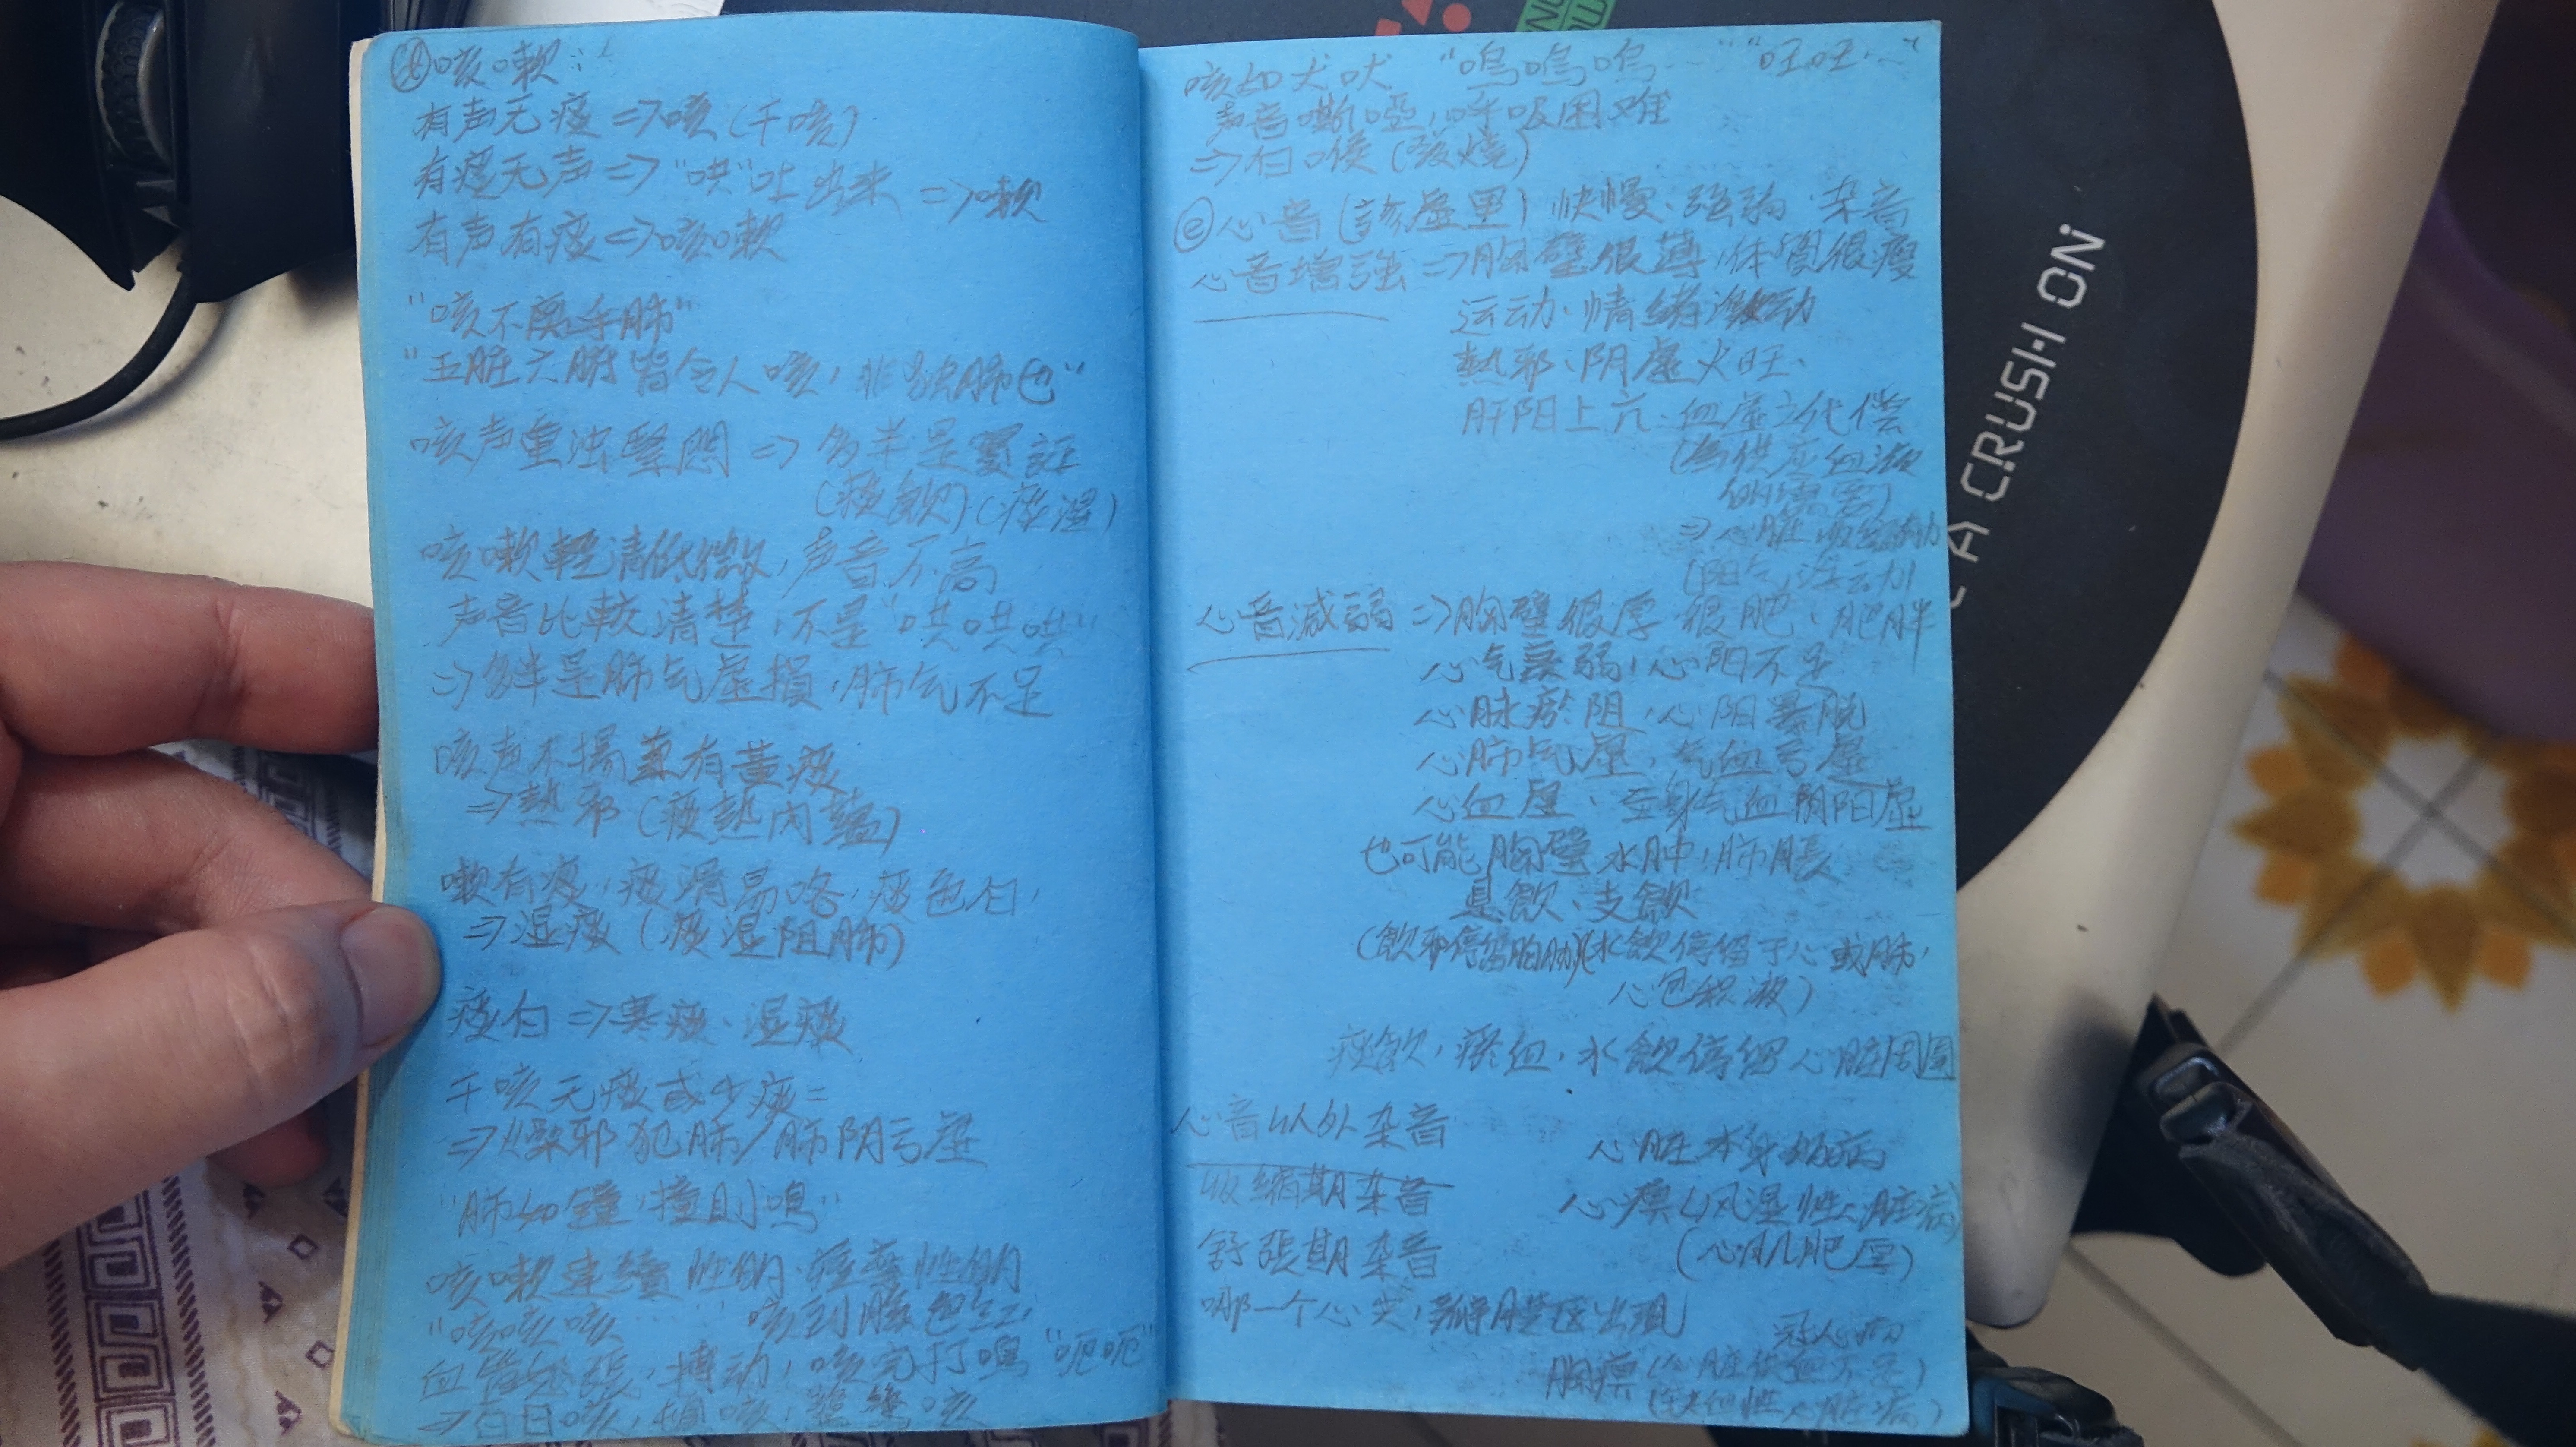 咳嗽:
有声无痰⇒咳(干咳)
有痰无声⇒"哄"吐出来⇒嗽
有声有痰⇒咳嗽
"咳不离乎肺"
"五脏六腑皆令人咳,非独肺也"
咳声重浊緊悶⇒多半是實証
(痰飲)(痰湿)
咳嗽輕清低微,声音不高
声音比較清楚,不是"哄哄哄"
⇒多半是肺气虚損,肺气不足
咳声不揚兼有黃痰
⇒熱邪(痰熱內蘊)
嗽有痰,痰滑易咯,痰色白,
⇒湿痰(痰湿阻肺)
痰白⇒寒痰、湿痰
干咳无痰或少痰=
⇒燥邪犯肺/肺阴亏虚
"肺如鐘,撞则鳴"
咳嗽連續性的、痙攣性的
"咳咳咳……咳到臉色红,
血管怒張,搏动,咳完打鳴"呃呃"
⇒百日咳,頓咳,鷺鷥咳
咳如犬吠 "嗚嗚嗚…""旺旺…"
声音嘶啞,呼吸困难
⇒白喉(發燒)
心音(診虚里)快慢、强弱、杂音
心音增强⇒胸壁很薄,体質很瘦
运动、情緒激动
熱邪、阴虚火旺、
肝阳上亢、血虚之代偿
(為供应血液
的需要)
⇒心脏
(阳气浮动)
心音减弱⇒胸壁很厚 很肥、肥胖
心气衰弱,心阳不足
心脉瘀阻,心阳暴脱
心肺气虚,气血亏虚
心血虚、全身气血阴阳虚
也可能胸壁水肿,肺脹
悬飲、支飲
(飲邪停留胸胁)(水飲停留于心或肺,
心包积液)
痰飲,瘀血,水飲停留心脏周圍
心音以外杂音
心脏本身的病
收缩期杂音
心痹(风湿性心脏病)
舒張期杂音
(心肌肥厚)
哪一个心尖,瓣膜区出現
冠心病
胸痹(心脏供血不足)
(缺血性心脏病)
A CRUSH ON